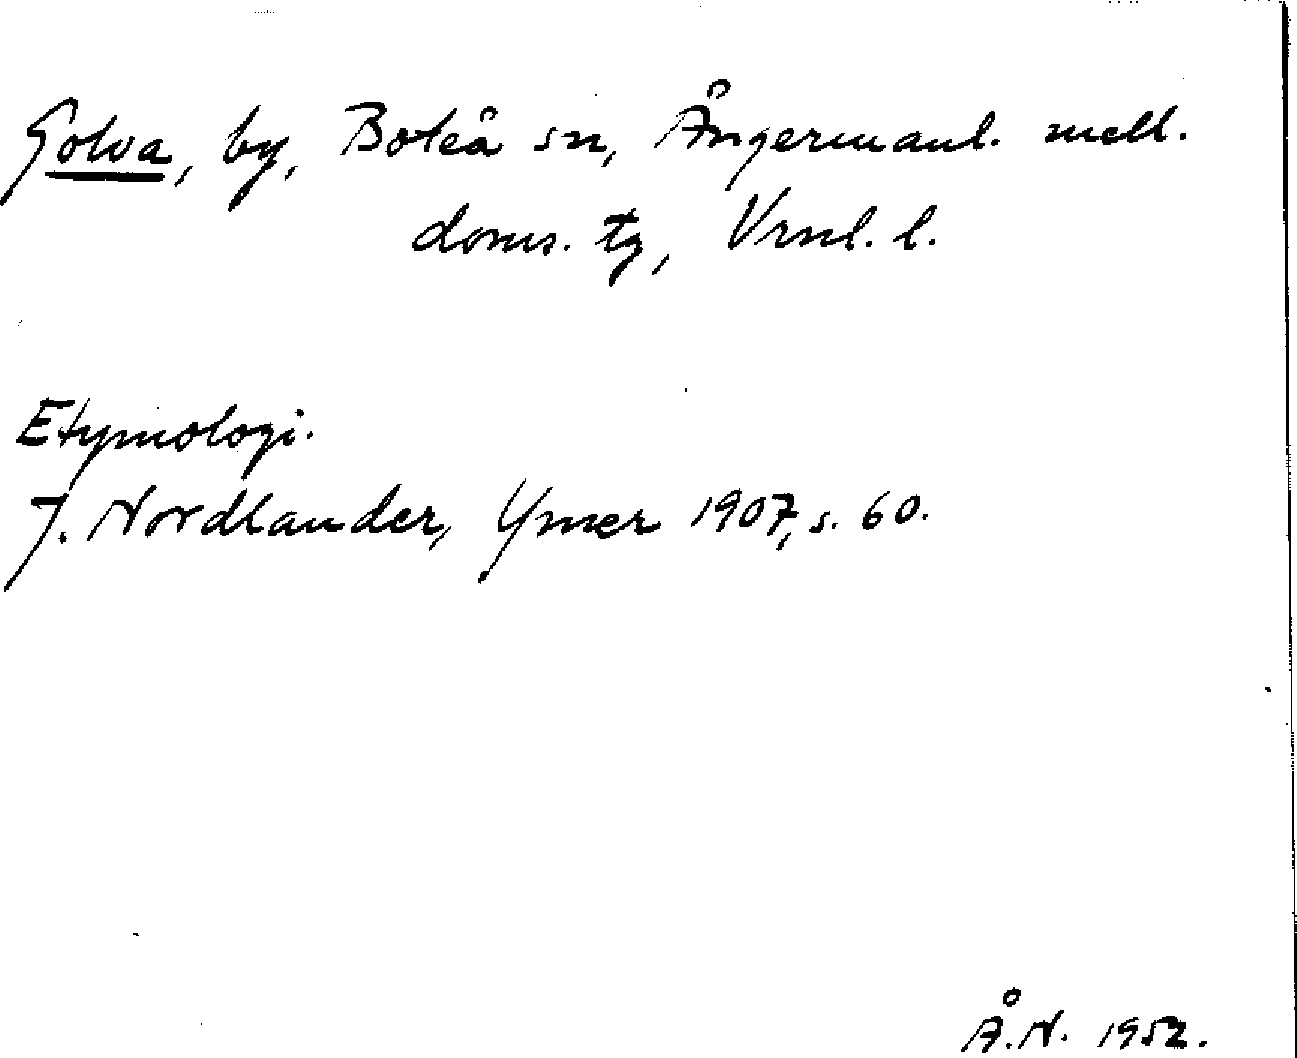 Golva, by, Boteå sn, Ångermanl. mell.
doms. tg, Vrnl. l.
Etymologi.
J. Nordlander, Ymer 1907, s. 60.
Å.N. 1952.